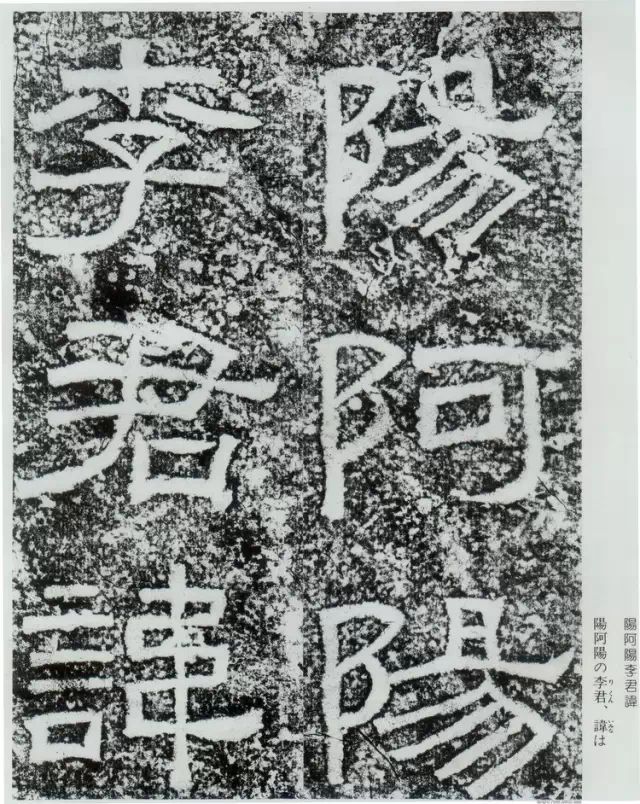 陽阿陽
李君諱
陽阿陽李君諱
陽阿陽の李君、諱は
りくん
いな